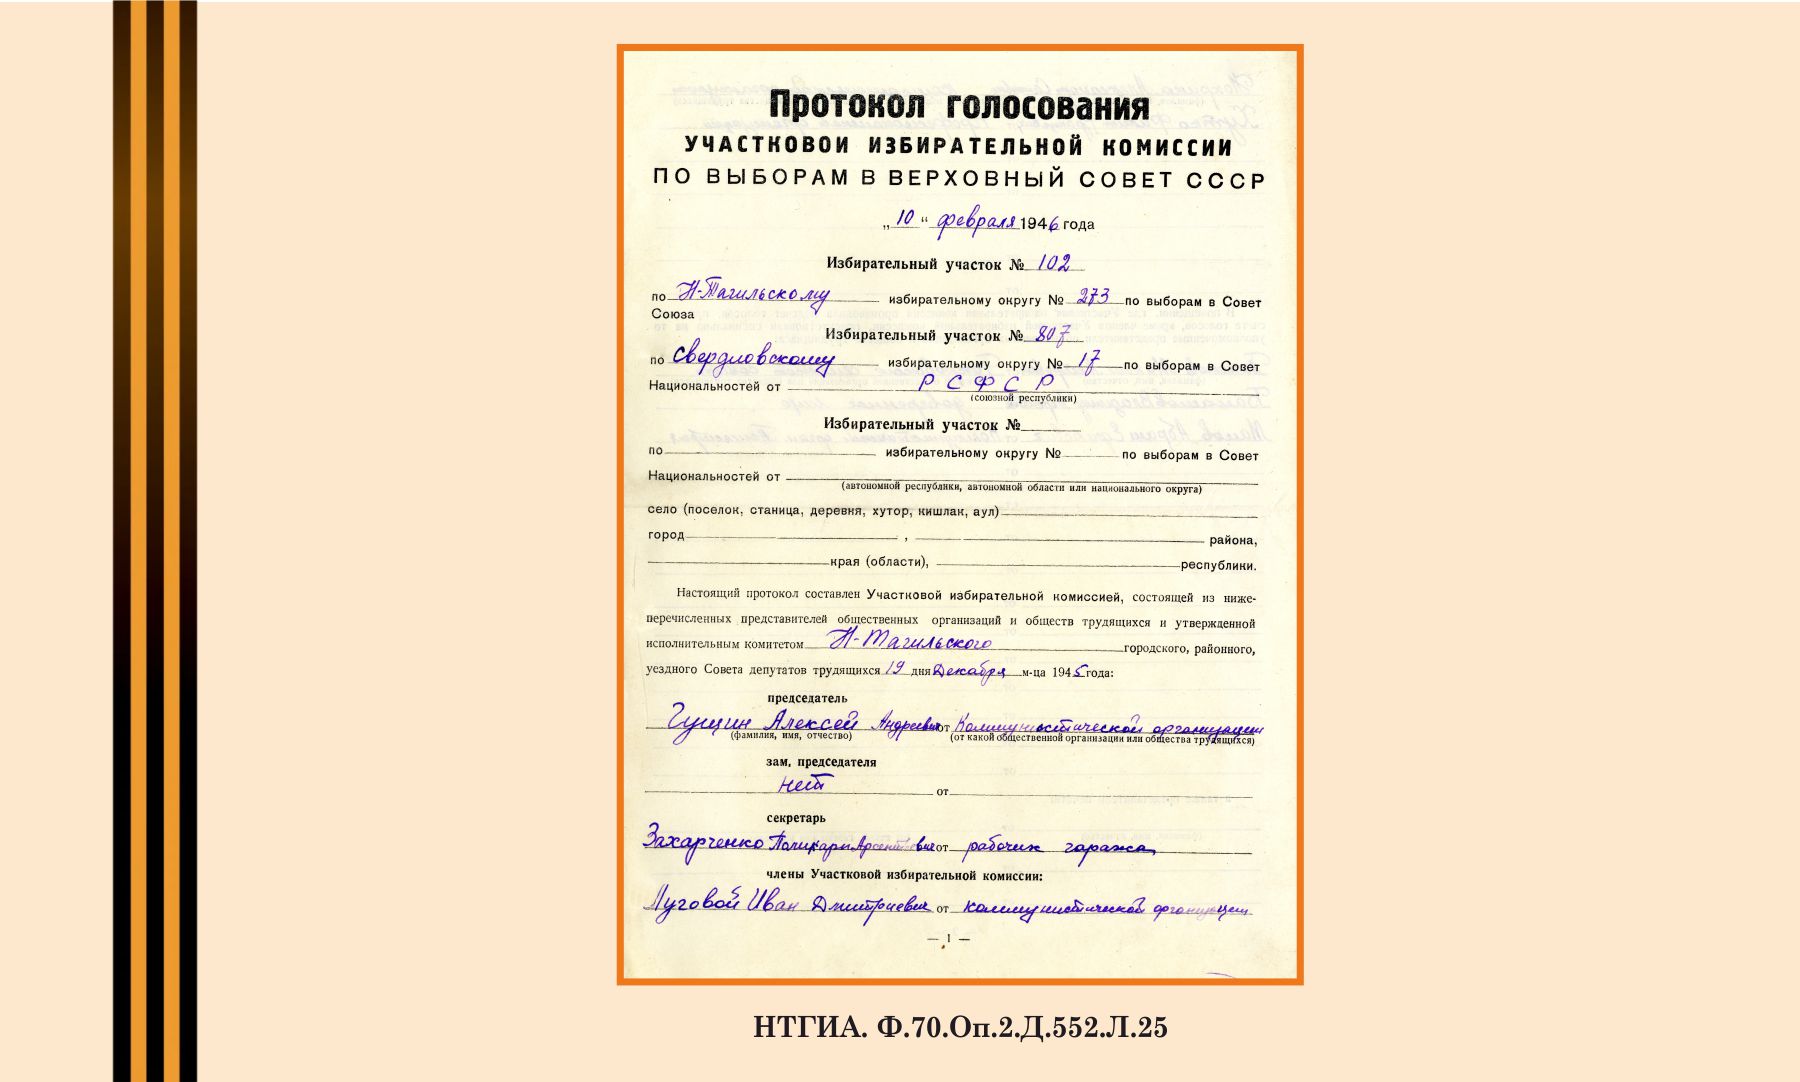 Протокол голосования
УЧАСТКОВОЙ ИЗБИРАТЕЛЬНОЙ КОМИССИИ
ПО ВЫБОРАМ В ВЕРХОВНЫЙ СОВЕТ СССР
„10“ февраля 1946 года
Избирательный участок № 102
по Н-Тагильскому избирательному округу № 273 по выборам в Совет
Союза
Избирательный участок № 807
по Свердловскому избирательному округу № 17 по выборам в Совет
Национальностей от Р С Ф С Р
(союзной республики)
Избирательный участок №
по избирательному округу № по выборам в Совет
Национальностей от
(автономной республики, автономной области или национального округа)
село (поселок, станица, деревня, хутор, кишлак, аул)
город , района,
края (области), республики.
Настоящий протокол составлен Участковой избирательной комиссией, состоящей из ниже-
перечисленных представителей общественных организаций и обществ трудящихся и утвержденной
исполнительным комитетом Н-Тагильского городского, районного,
уездного Совета депутатов трудящихся 19 дня Декабря м-ца 1945 года:
председатель
Гущин Алексей Андреевич от Коммунистической организации
(фамилия, имя, отчество) (от какой общественной организации или общества трудящихся)
зам. председателя
нет от
секретарь
Захарченко Поликарп Арсентьевич от рабочих гаража
члены Участковой избирательной комиссии:
Луговой Иван Дмитриевич от коммунистической организации
— 1 —
НТГИА. Ф.70.Оп.2.Д.552.Л.25